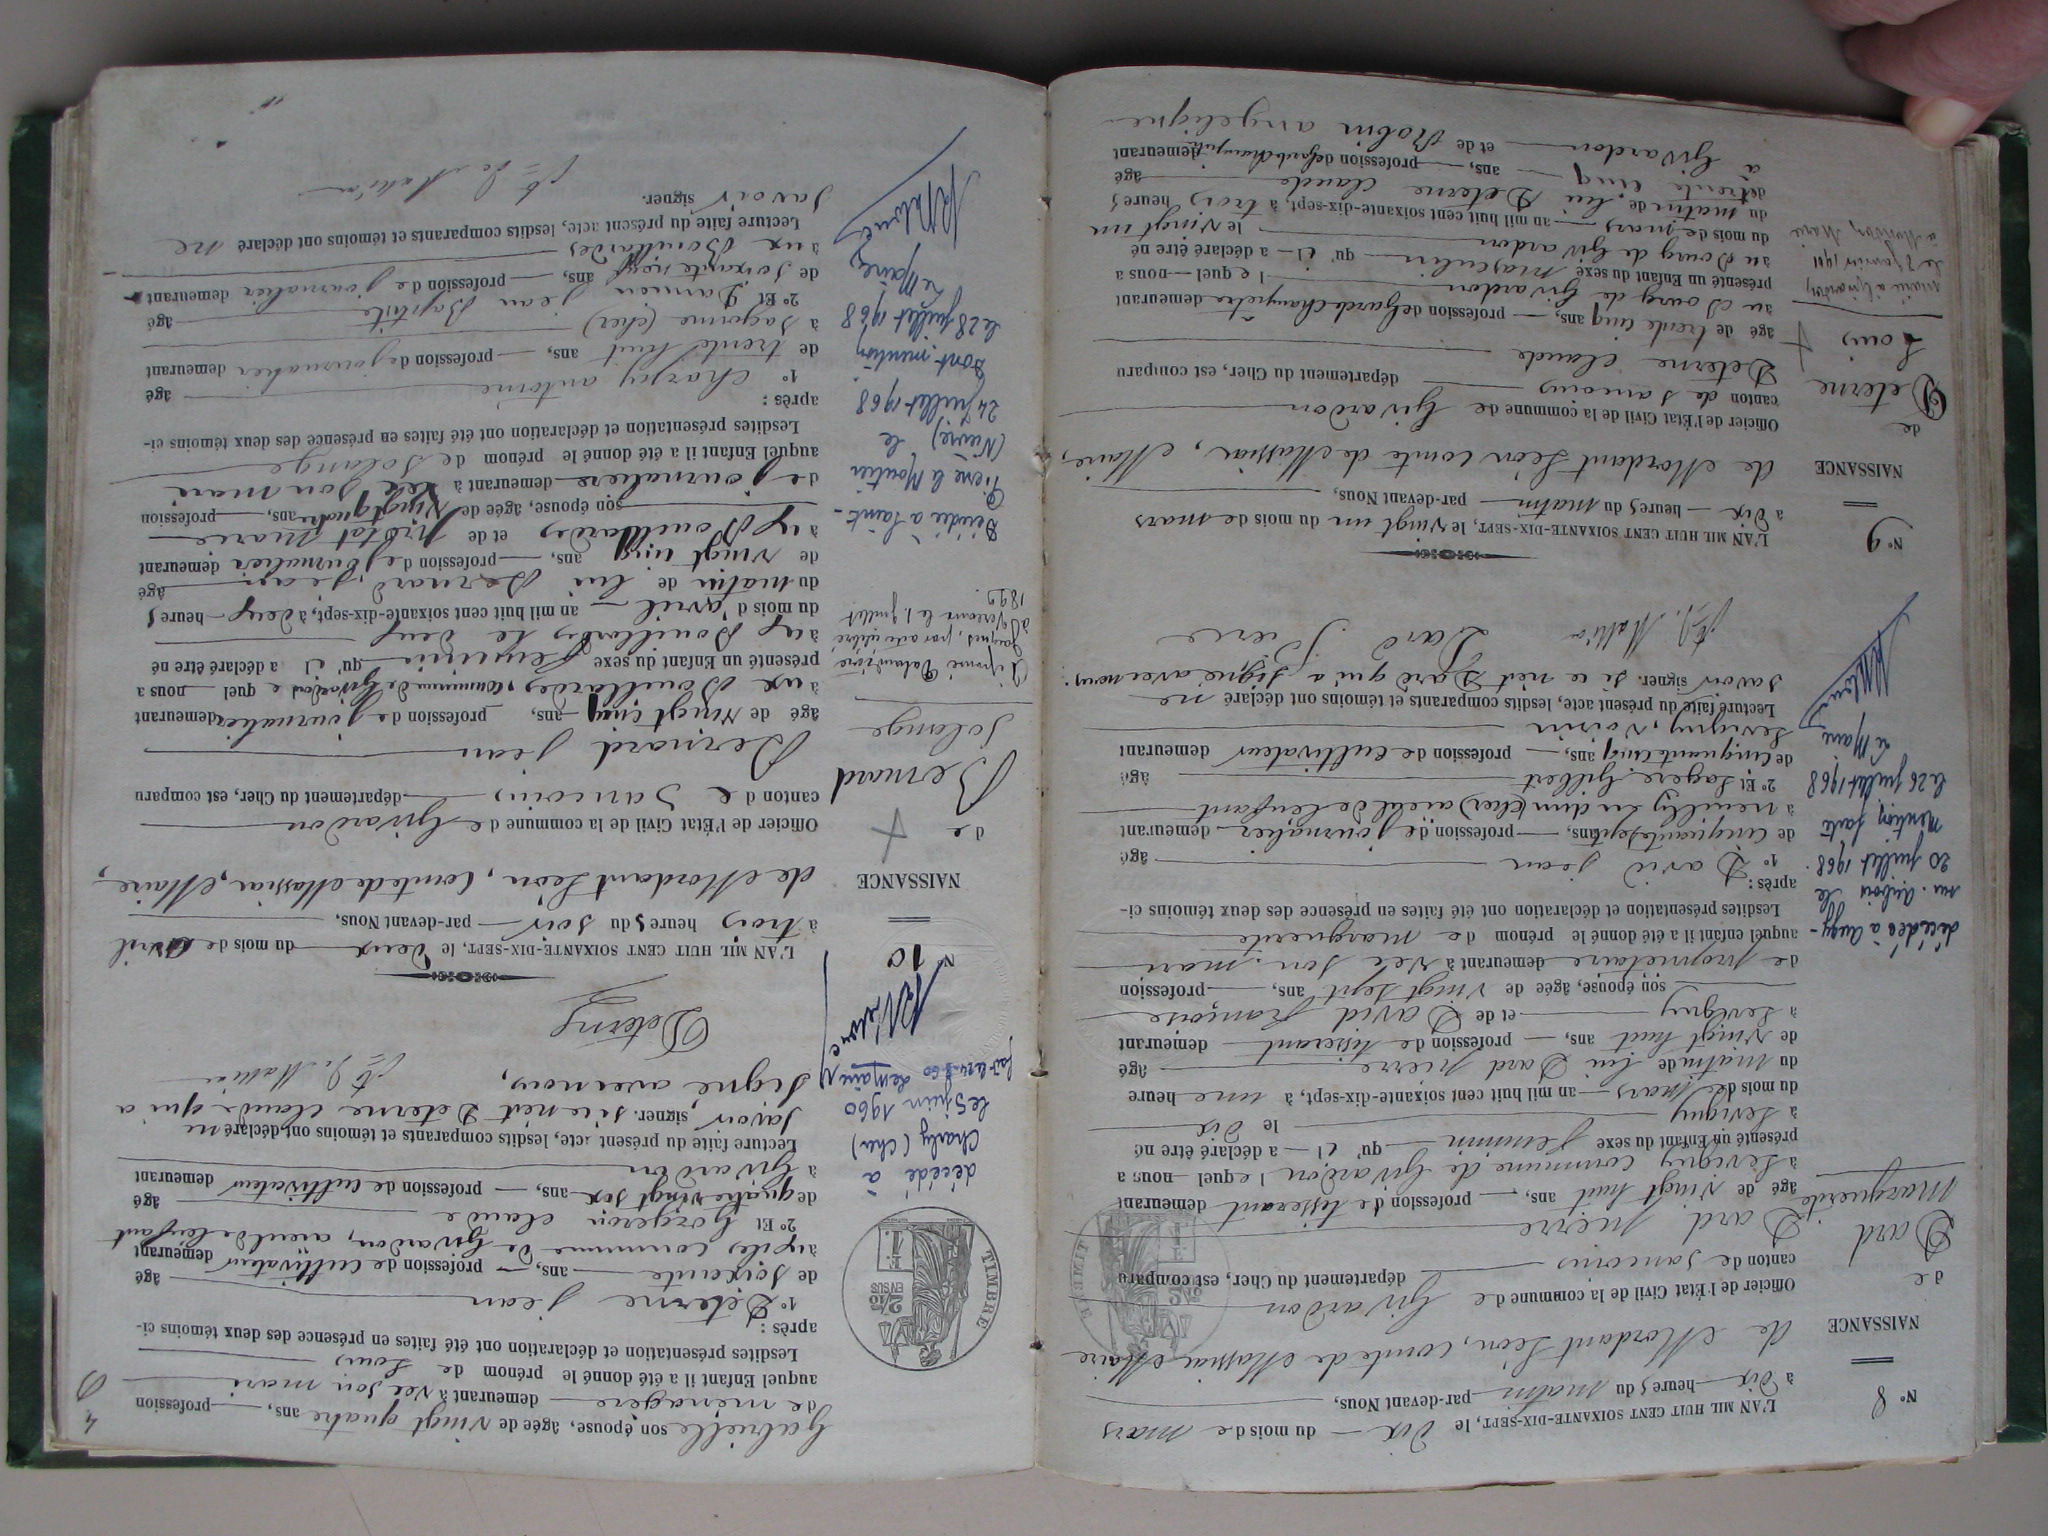 N° 8
NAISSANCE
de
Dard
Marguerite
décédée à Augy-
sur-Aubois le
20 juillet 1968.
mention faite
le 26 juillet 1968
Le Maire,
L'AN MIL HUIT CENT SOIXANTE-DIX-SEPT, le Dix du mois de mars
à Dix heures du matin par-devant Nous,
de Mordant Léon, comte de Massiac, Maire
Officier de l'État Civil de la commune de Givardon
canton de Sancoins département du Cher, est comparu
Dard Pierre
agé de vingt huit ans, profession de tisserant demeurant
à Sevigny commune de Givardon lequel nous a
présenté un Enfant du sexe féminin qu'il a déclaré être né
à Sevigny le Dix
du mois de mars an mil huit cent soixante-dix-sept, à une heure
du matin de lui Dard Pierre âgé
de vingt huit ans, profession de tisserant demeurant
à Sevigny et de David Françoise
son épouse, âgée de vingt sept ans, profession
de propriétaire demeurant avec son mari
auquel enfant il a été donné le prénom de marguerite
Lesdites présentation et déclaration ont été faites en présence des deux témoins ci-
après :
1° David jean âgé
de cinquante sept ans, profession de journalier demeurant
à neuilly en dun (cher) aieul de lenfant
2° Et Lagere Gilbert âgé
de cinquante cinq ans, profession de cultivateur demeurant
Sevigny, voisin
Lecture faite du présent acte, lesdits comparants et témoins ont déclaré ne
savoir signer. si ce n'est Dard qui a signé avec nous.
Dard Pierre
N° 9
NAISSANCE
de
Deterne
Louis
Marié à Givardon
le 8 janvier 1901
L'AN MIL HUIT CENT SOIXANTE-DIX-SEPT, le vingt un du mois de mars
à dix heures du matin par-devant Nous,
de Mordant Léon comte de Massiac, Maire,
Officier de l'État Civil de la commune de Givardon
canton de Sancoins département du Cher, est comparu
Deterne Claude
agé de trente cinq ans, profession de garde champetre demeurant
au Bourg de Givardon lequel nous a
présenté un Enfant du sexe masculin qu'il a déclaré être né
au Bourg de Givardon le vingt un
du mois de mars an mil huit cent soixante-dix-sept, à trois heures
du matin de lui Deterne Claude âgé
de trente cinq ans, profession de garde champetre demeurant
à Givardon et de Robin angelique
4
Gabrielle son épouse, âgée de vingt quatre ans, profession
de ménagere demeurant avec son mari
auquel Enfant il a été donné le prénom de Louis
Lesdites présentation et déclaration ont été faites en présence des deux témoins ci-
après :
1° Deterne jean âgé
de soixante ans, profession de cultivateur demeurant
commune de Givardon, aieul de lenfant
2° Et Gorgeron claude âgé
de quatre vingt six ans, profession de cultivateur demeurant
à Givardon
Lecture faite du présent acte, lesdits comparants et témoins ont déclaré ne
savoir signer. si ce n'est Deterne Claude qui a
signé avec nous,
Deterne
TIMBRE
2/10 EN SUS
décédé à
Charly (Cher)
le 5 juin 1960
N° 10
NAISSANCE
de
Bernard
Solange
Décédée à Saint-
Pierre le Moutier
(Nièvre) le
24 juillet 1968.
Dont mention
le 28 juillet 1968
Le Maire,
L'AN MIL HUIT CENT SOIXANTE-DIX-SEPT, le Deux du mois de avril
à trois heures du soir par-devant Nous,
de Mordant Léon, Comte de Massiac, Maire,
Officier de l'État Civil de la commune de Givardon
canton de Sancoins département du Cher, est comparu
Bernard jean
agé de vingt cinq ans, profession de journalier demeurant
aux Bouillardes, commune de Givardon lequel nous a
présenté un Enfant du sexe féminin qu'il a déclaré être né
aux Bouillardes le deux
du mois d'avril an mil huit cent soixante-dix-sept, à deux heures
du matin de lui Bernard, jean âgé
de vingt cinq ans, profession de journalier demeurant
aux Bouillardes et de Protat Marie
son épouse, âgée de vingt quatre ans, profession
de journaliere demeurant avec son mari
auquel Enfant il a été donné le prénom de Solange
Lesdites présentation et déclaration ont été faites en présence des deux témoins ci-
après :
1° Chargy antoine âgé
de trente huit ans, profession de journalier demeurant
à Sagonne (cher)
2° Et Damion jean Baptiste âgé
de soixante neuf ans, profession de journalier demeurant
aux Bouillardes
Lecture faite du présent acte, lesdits comparants et témoins ont déclaré ne
savoir signer.